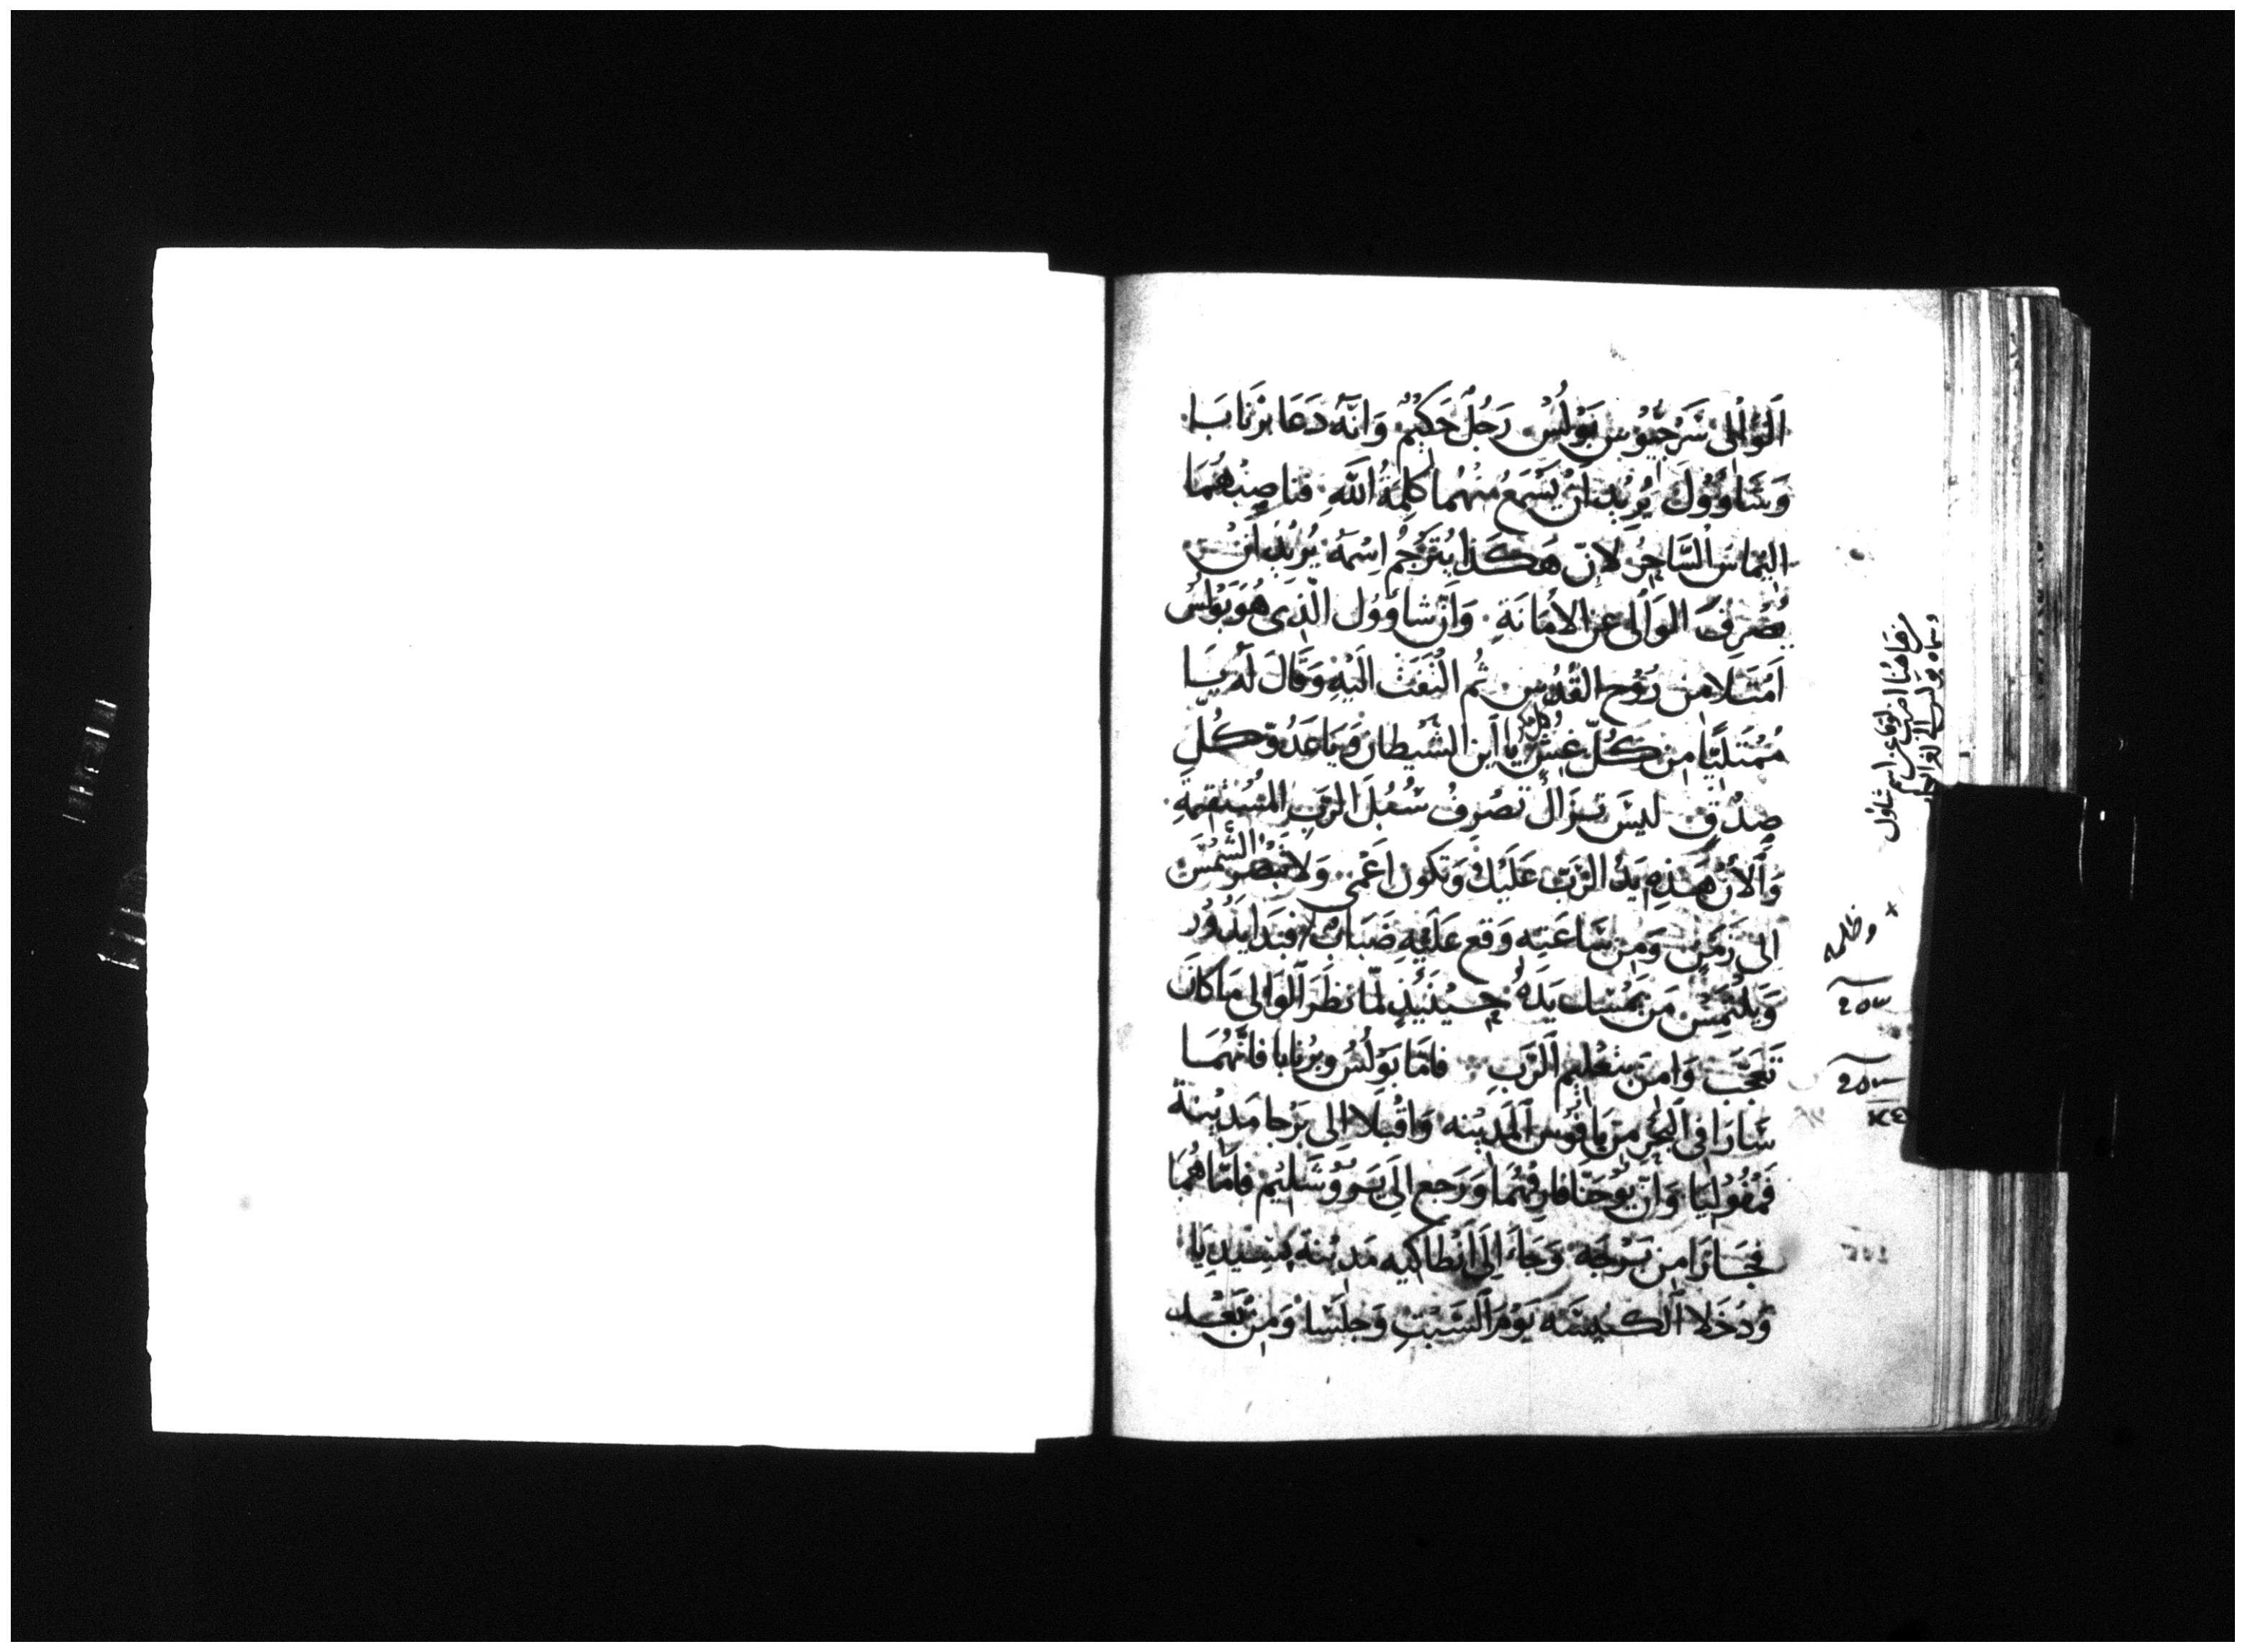 اَلوَالِى سَرْجِيُوْس بَوْلُسْ. رَجُلٌ حَكِيْمٌ وَانَّهُ دَعَا بَرْنَابَا
وَشَاوُوْلَ يُرِيْد اَنْ يَسْمَعُ مِنْهُمَا كَلِمَةُ اللَّهِ. فناصَبْهُمَا
اليماسَ السَّاحِرُ لاِنّ هَكَذَا يُتَرْجَمُ اِسْمَهُ يُرِيْد اَنْ
يَصْرِفَ الوَالِى عن الاَمَانَةِ. وَانّ شاوُوْل الّذِى هُوَ بَوْلسُ
اَمْتَلَا مِن رُوْح القُدُسِ ثُم الْتَفَتَ الَيْهِ وَقَالَ لَهُ يَا
مُمْتَلِيًا مِن كُلّ غِشٍ يا ابن الشَيْطان وَيَاعَدُوّ كُلِّ
صِدْقٍ ليْسَ تزَالُ تَصْرِفُ سُبُلَ الرَّبِ المُسْتَقِيْمَةِ.
وَالاَنْ هَذِهِ يَدُ الرَّبّ عَلَيْكَ وَتَكُون اَعْمى. وَلا تُبْصِرُ الشَّمْسَ
الى زَمَنٍ وَمِن سَاعَتِهِ وَقع عَلَيْهِ ضَبَابٌ فبَدَا يَدُوْرُ
وَيَلْتَمِسْ مَن يَمْسِك يَدَهُ حِيْنَيْذٍ لَمّا نظَرَ الوَالى مَا كَانَ
تَعَجَّبَ وَامَنَ بتعْلِيم الرَّبِ. فامّا بَوْلُسُ وبَرْنابا فانّهُمَا
سَارَا فى البَحْرِ مِن يافُوْس المَدِيْنه وَاقْبَلا اِلى بَرْجا مَدِيْنة
فمْفُوْلِيَا وَانّ يُوْحَنّا فارَقهُمَا وَرَجع اِلَى يَرُوْشَلِيْم فامّا هُمَا
فجَازَا مِن بَرْجَه وَجَاءَ اِلَى انْطاكيه مَدِيْنة بسيْدِيَا
وَدَخَلا الكَنِيْسَه يَوْم السَّبْتِ وَجلَسَا وَمِنْ بَعْد
من هاهنا
وسماه بولس
شاول
وظلمه